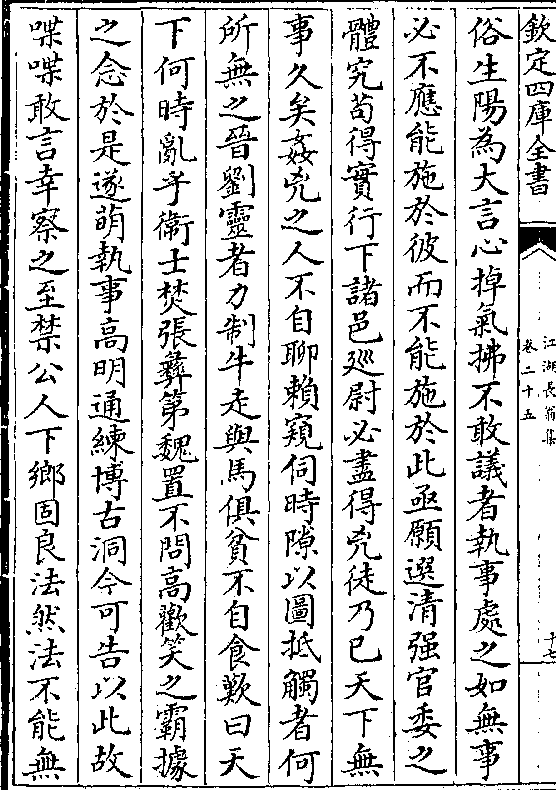 欽定四庫全書
江湖長翁集
卷二十五
十七
俗生陽為大言心掉氣拂不敢議者執事處之如無事
必不應能施於彼而不能施於此亟願選清强官委之
體究茍得實行下諸邑廵尉必盡得兇徒乃已天下無
事久矣姦兇之人不自聊賴窺伺時隙以圖抵觸者何
所無之晉劉靈者力制牛走與馬俱貧不自食歎曰天
下何時亂乎衞士焚張彝第魏置不問高歡笑之霸據
之念於是遂萌執事高明通練博古洞今可告以此故
喋喋敢言幸察之至禁公人下鄉固良法然法不能無